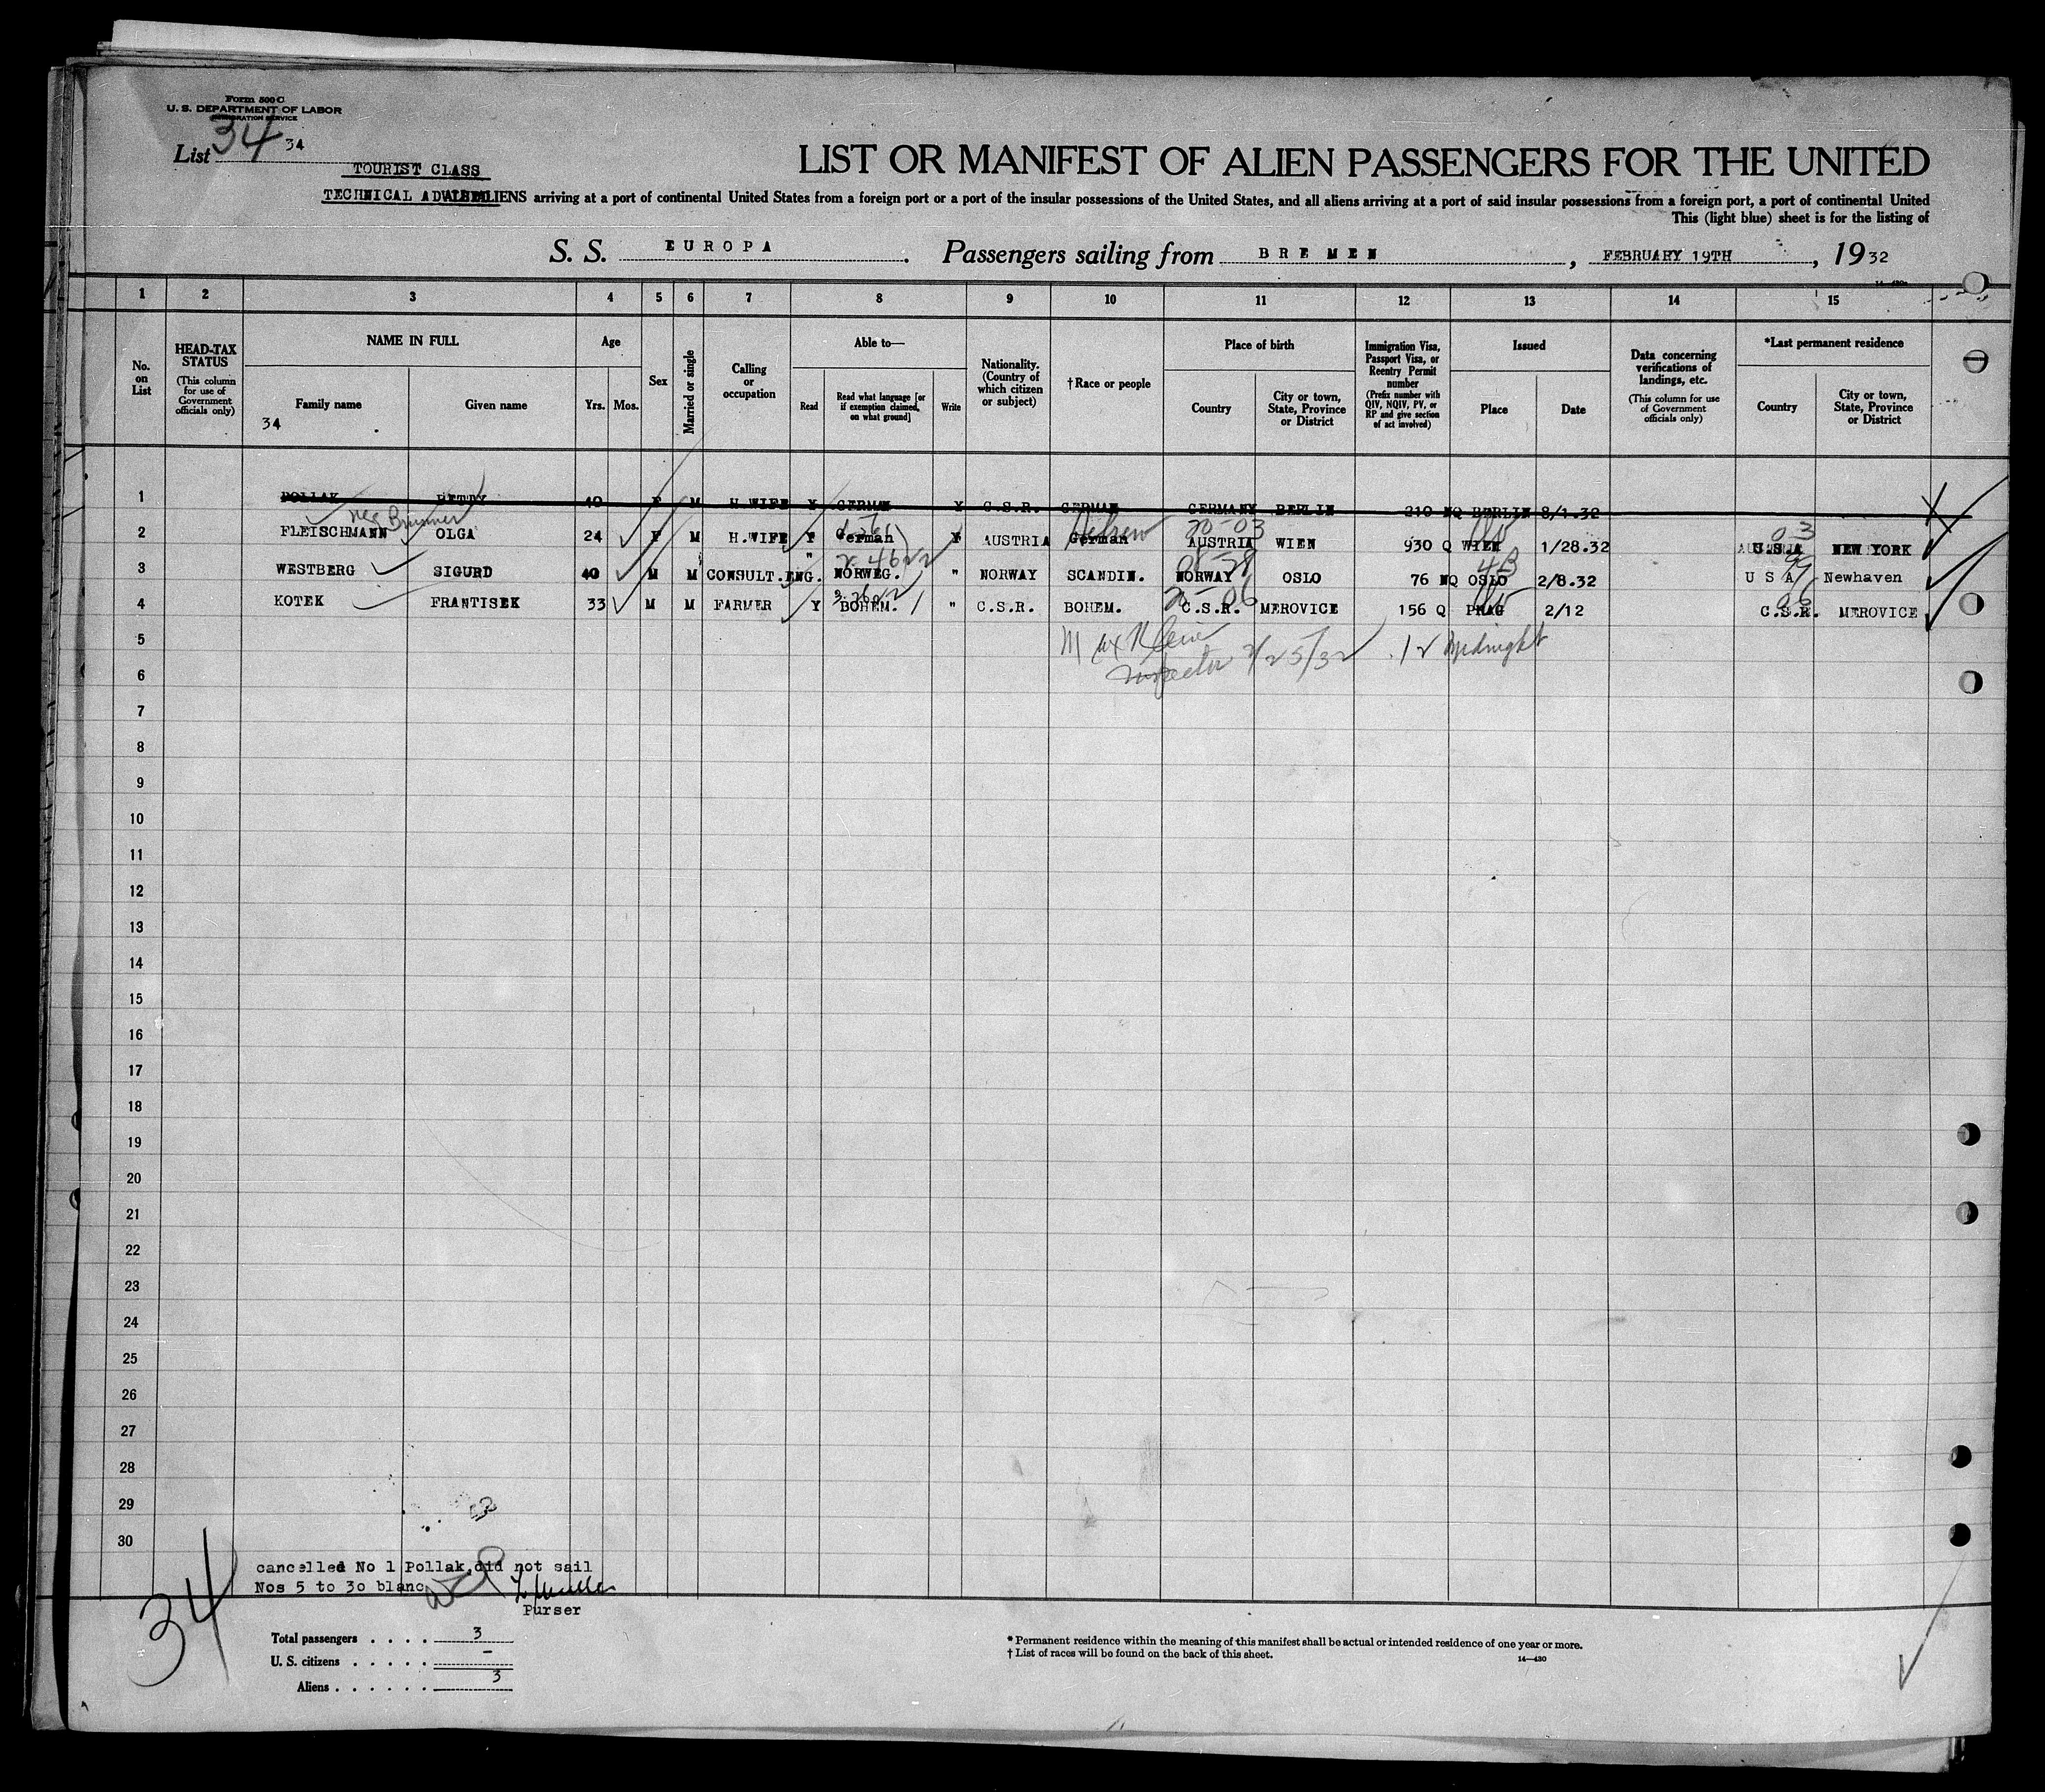 Form 500 C
U. S. DEPARTMENT OF LABOR
IMMIGRATION SERVICE
List 34 34
TOURIST CLASS
LIST OR MANIFEST OF ALIEN PASSENGERS FOR THE UNITED
TECHNICAL ALIENS arriving at a port of continental United States from a foreign port or a port of the insular possessions of the United States, and all aliens arriving at a port of said insular possessions from a foreign port, a port of continental United
This (light blue) sheet is for the listing of
S. S. EUROPA. Passengers sailing from BREMEN, FEBRUARY 19TH, 1932
1 2 3 4 5 6 7 8 9 10 11 12 13 14 15
No. on List
HEAD-TAX STATUS
(This column for use of Government officials only)
NAME IN FULL
Family name
Given name
34
Age
Yrs. Mos.
Sex
Married or single
Calling or occupation
Able to—
Read
Read what language [or if exemption claimed, on what ground]
Write
Nationality. (Country of which citizen or subject)
† Race or people
Place of birth
Country
City or town, State, Province or District
Immigration Visa, Passport Visa, or Reentry Permit number
(Prefix number with QIV, NQIV, PV, or RP and give section of act involved)
Issued
Place
Date
Data concerning verifications of landings, etc.
(This column for use of Government officials only)
*Last permanent residence
Country
City or town, State, Province or District
1 POLLAK BETTY 40 F M H.WIFE Y GERMAN Y C.S.R. GERMAN GERMANY BERLIN 210 NQ BERLIN 8/1.32
nee Brunner
2 FLEISCHMANN OLGA 24 F M H.WIFE Y German Y AUSTRIA German Hebrew AUSTRIA WIEN 930 Q WIEN 1/28.32 U.S.A NEW YORK
3 WESTBERG SIGURD 40 M M CONSULT.ENG. " NORWEG. " NORWAY SCANDIN. NORWAY OSLO 76 NQ OSLO 2/8.32 U S A Newhaven
4 KOTEK FRANTISEK 33 M M FARMER Y BOHEM. " C.S.R. BOHEM. C.S.R. MEROVICE 156 Q PRAG 2/12 C.S.R. MEROVICE
5 Max Klein 12 Midnight
6 Inspector 2/25/32
7
8
9
10
11
12
13
14
15
16
17
18
19
20
21
22
23
24
25
26
27
28
29
30
cancelled No 1 Pollak did not sail
Nos 5 to 30 blanc
Purser
34
Total passengers . . . . 3
U. S. citizens . . . . . –
Aliens . . . . . . 3
* Permanent residence within the meaning of this manifest shall be actual or intended residence of one year or more.
† List of races will be found on the back of this sheet.
14—430